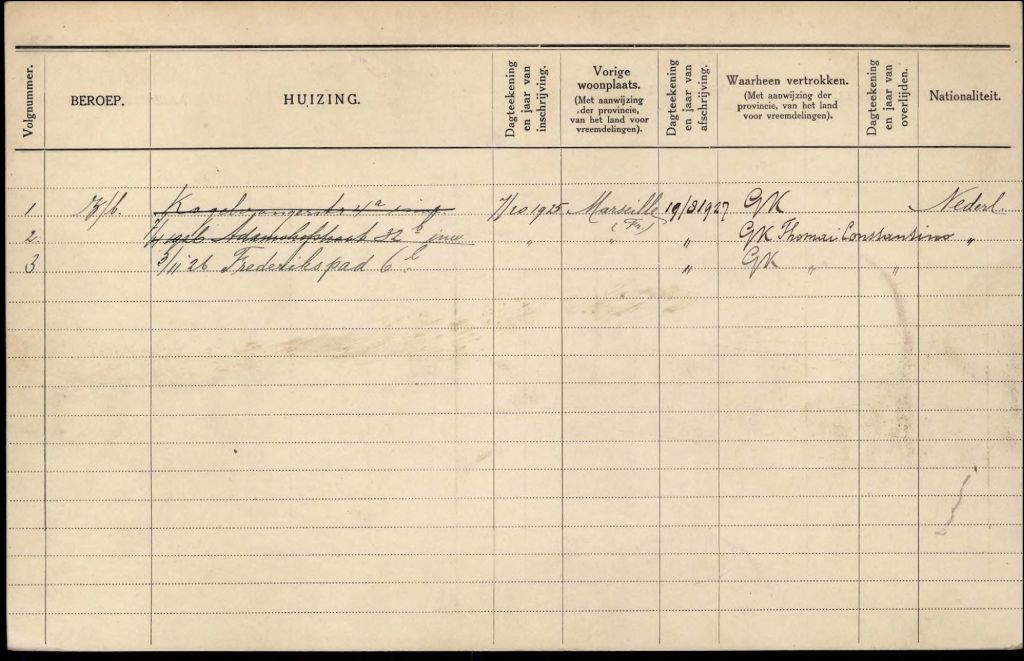 Volgnummer.
BEROEP.
HUIZING.
Dagteekening
en jaar van
inschrijving.
Vorige
woonplaats.
(Met aanwijzing
der provincie,
van het land voor
vreemdelingen).
Dagteekening
en jaar van
afschrijving.
Waarheen vertrokken.
(Met aanwijzing der
provincie, van het land
voor vreemdelingen).
Dagteekening
en jaar van
overlijden.
Nationaliteit.
1 Z/b. 4a ing. 7/10 1925 Marseille 19/8 1927 GK Nederl.
(Fr.)
2. 1926 Adamshofstraat 82 b inw. " " " GK Thomai Constantino "
3 3/11 26 Frederikspad 6 " GK " "